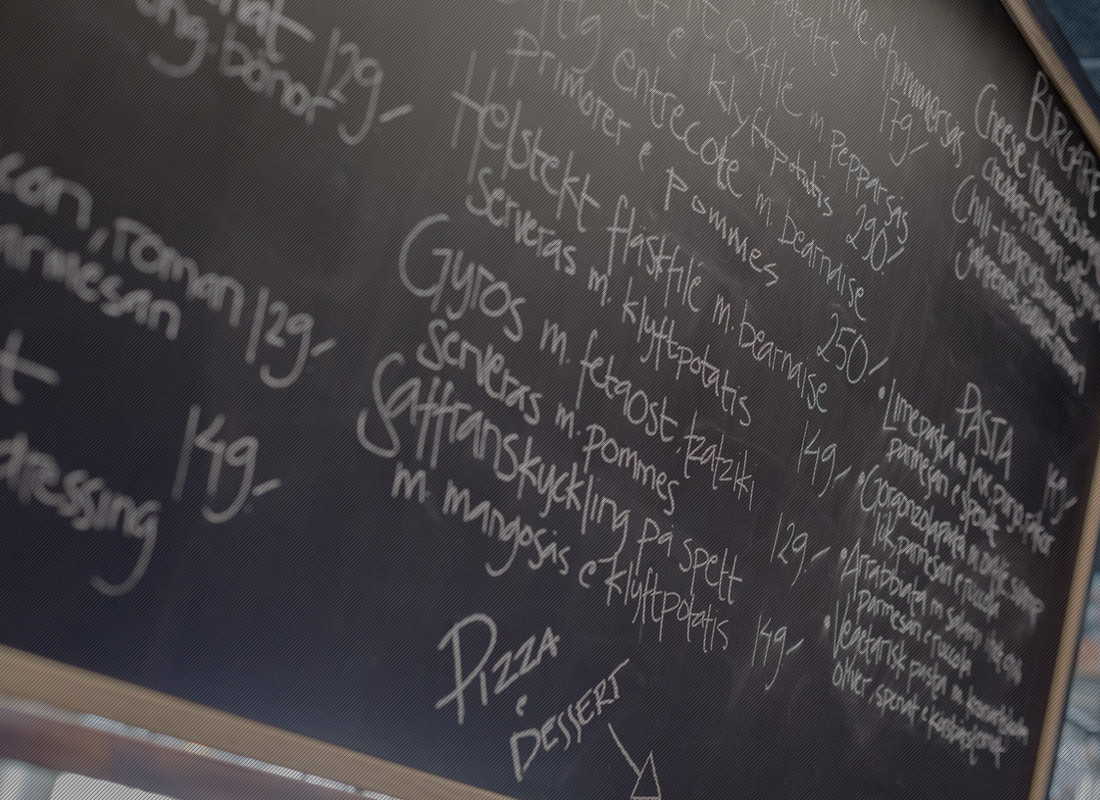 129/-
ong bönor
con, roman 129/-
armesan
t
149/-
dressing
potatis
179/-
oxfilé m pepparsås
klyftpotatis 290/-
entrecote m. bearnaise
primörer & pommes 250/-
Helstekt fläskfilé m. bearnaise
serveras m. klyftpotatis 149/-
Gyros m. fetaost, tzatziki
serveras m. pommes 129/-
Saffranskyckling på spett
m. mangosås & klyftpotatis 149/-
PIZZA
&
DESSERT
BURGARE
Cheese
Chili-
PASTA 149/-
• Limepasta m lax,
parmesan & spenat
• Gorgonzolapasta m
lök, parmesan & ruccola
• Arrabbiata m salami
parmesan & ruccola
• Vegetarisk pasta m
oliver, spenat &